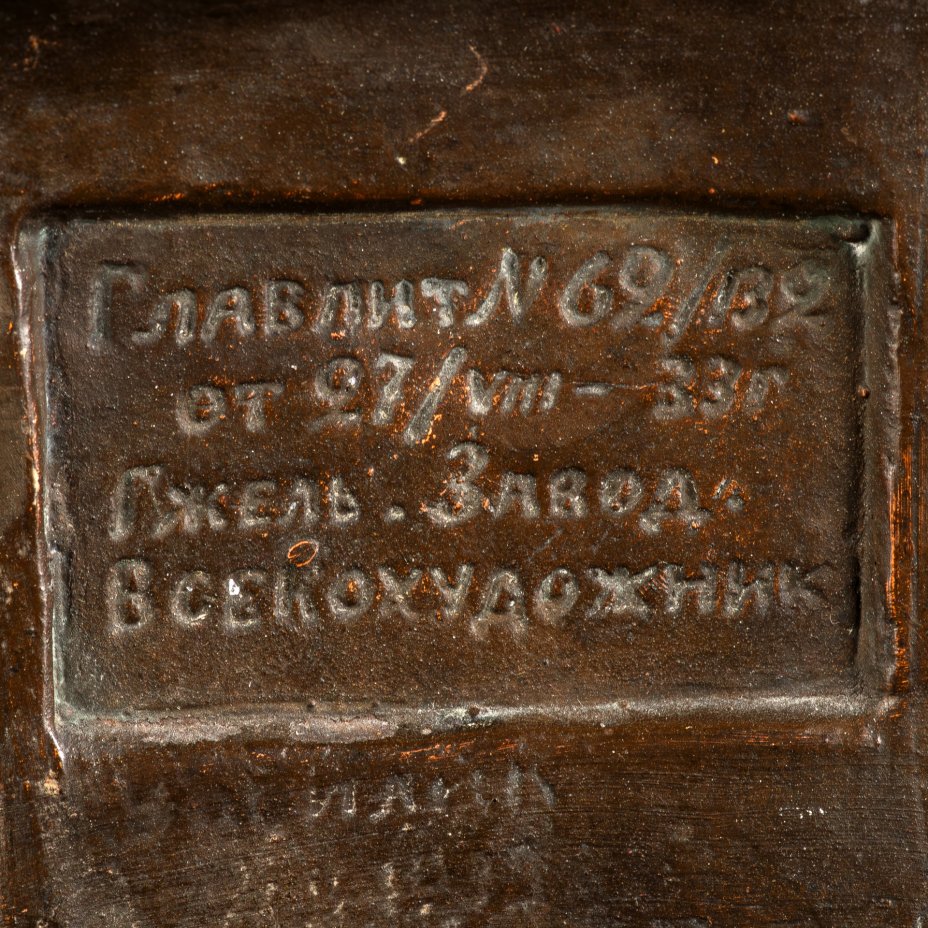 Главлит № 62/132
от 27/VIII – 33 г
Гжель. Завод.
Всекохудожник